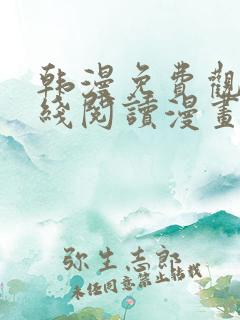 韩漫免費觀
綫閱讀漫畫
弥生志郎
未经同意禁止转载